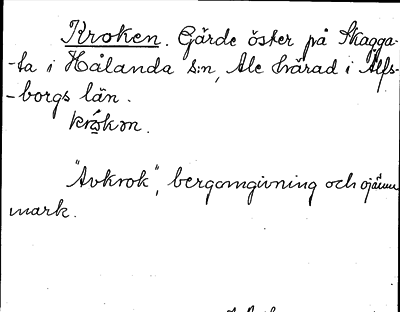 Kroken. Gärde öster på Skagga-
-ta i Hålanda s:n, Ale härad i Älfs-
-borgs län.
krókon.
"Avkrok", bergomgivning och ojämn
mark.